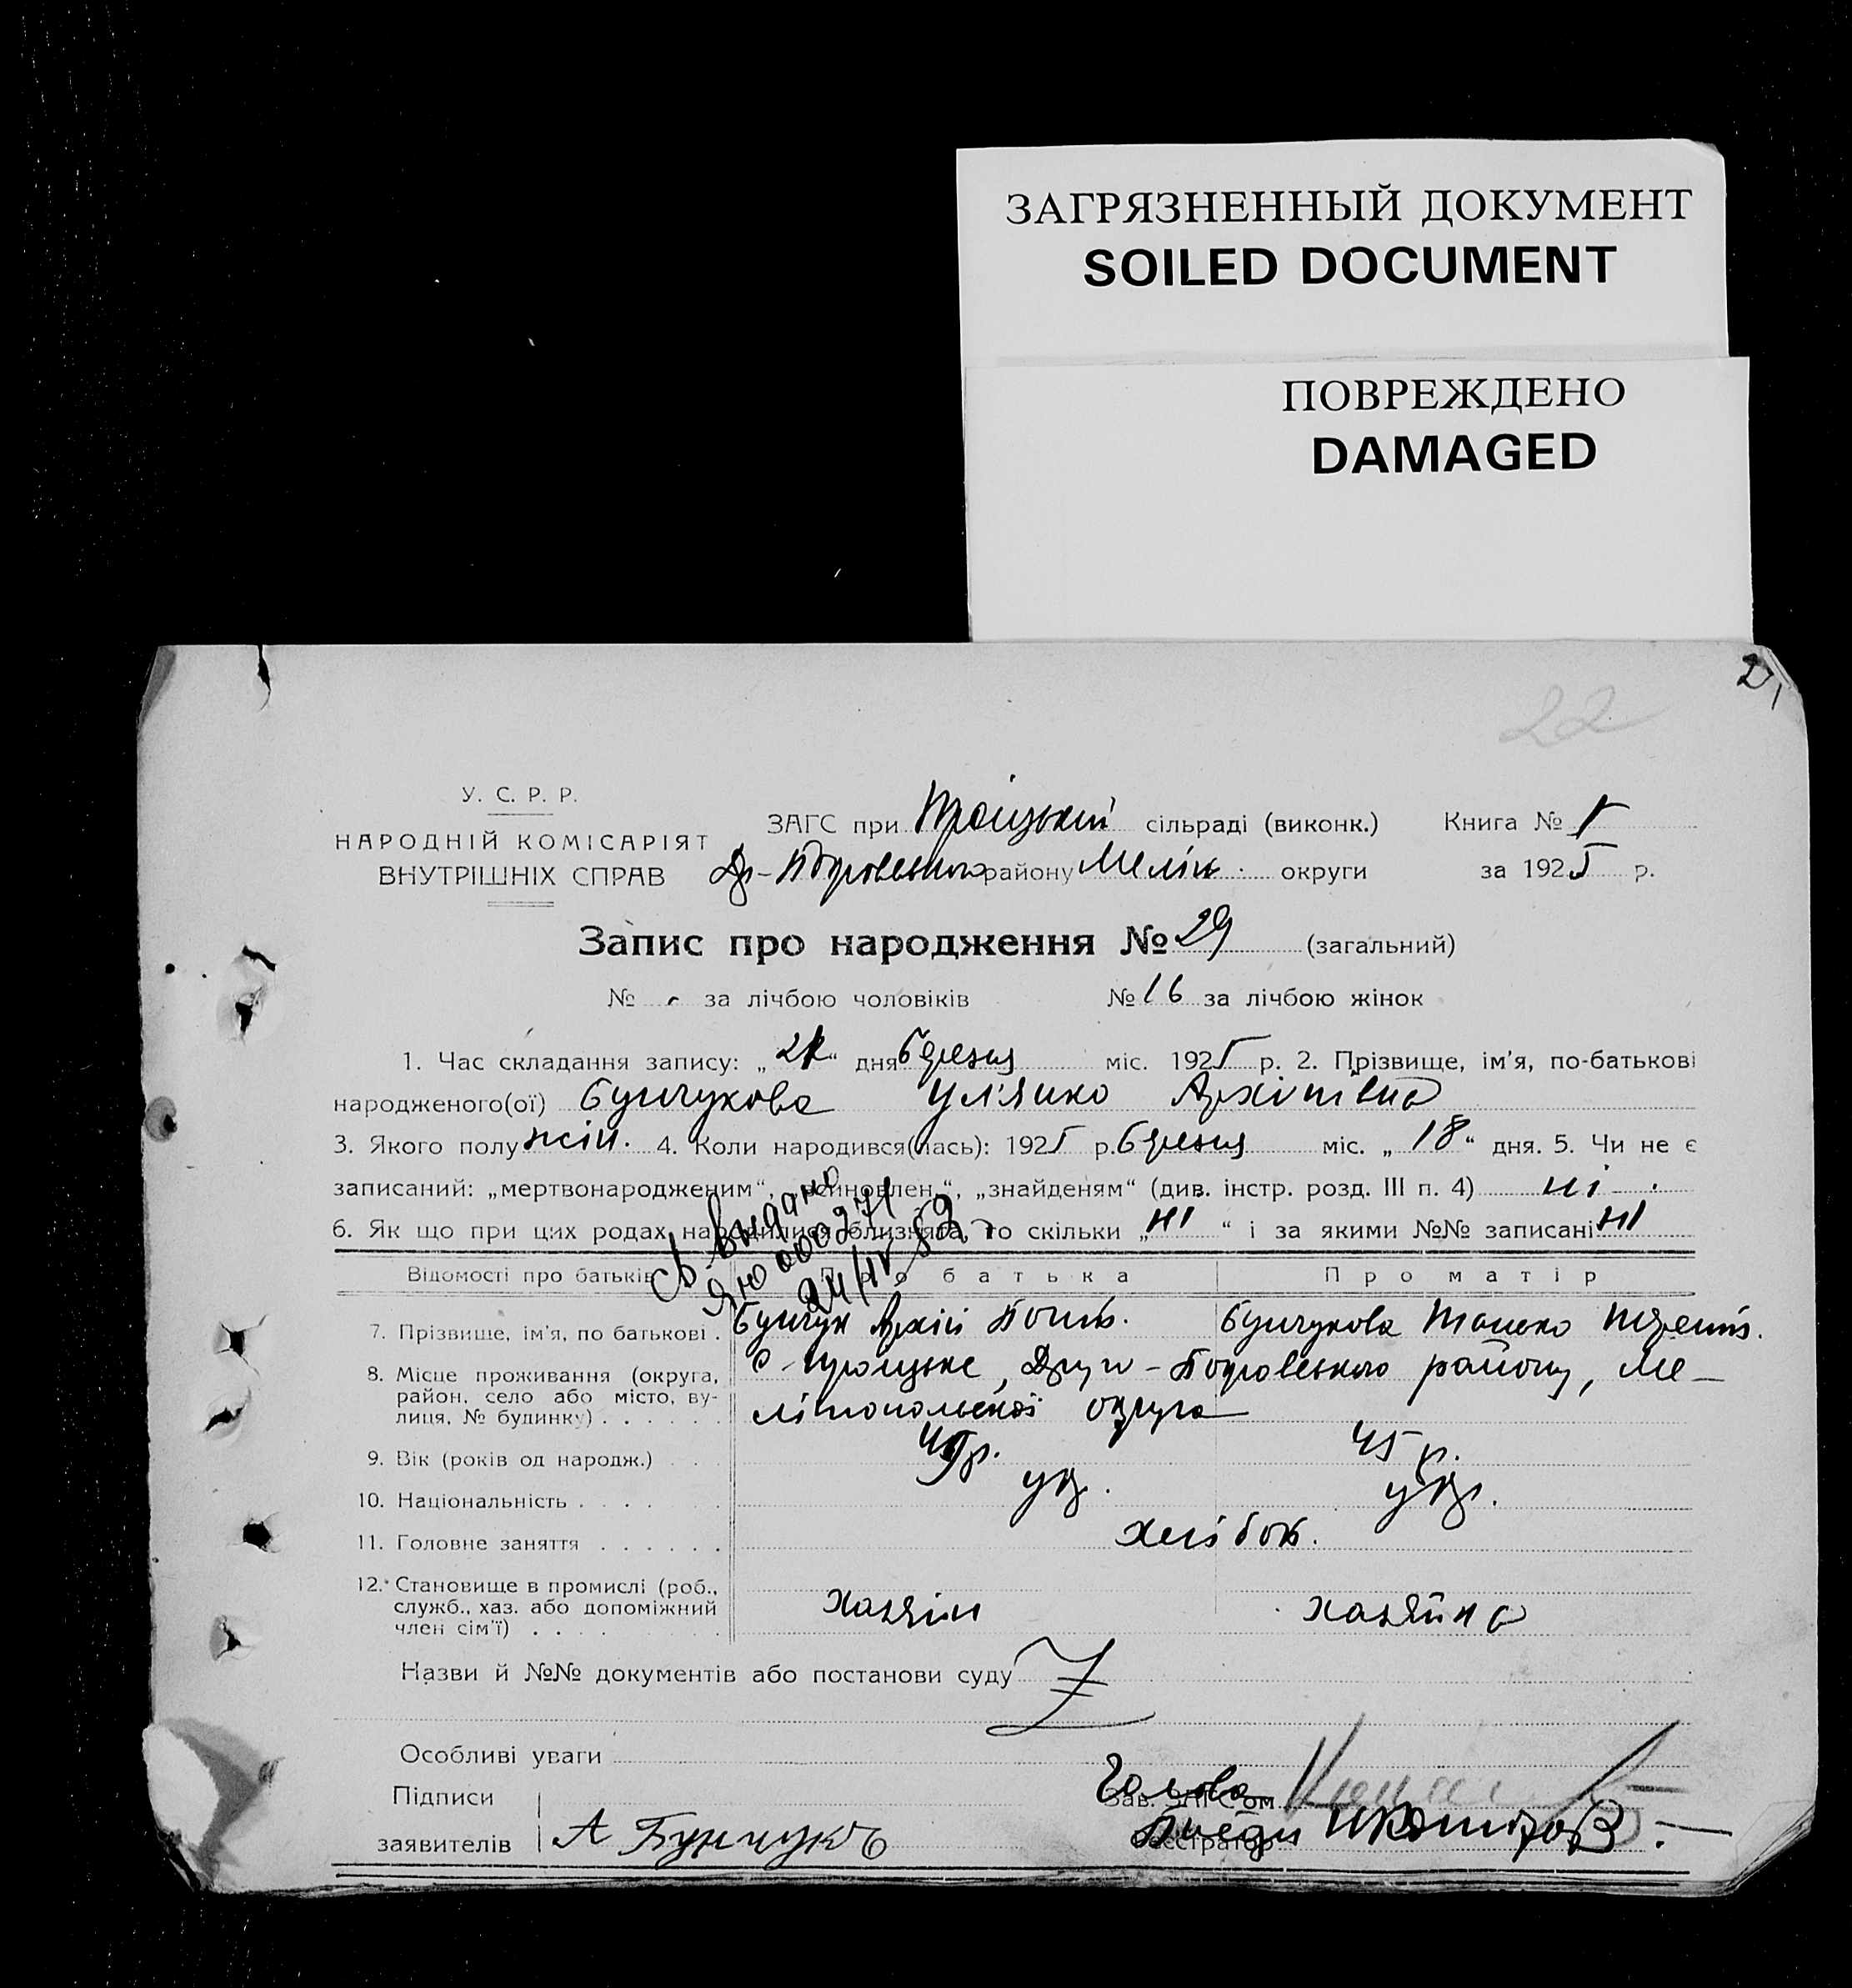 ЗАГРЯЗНЕННЫЙ ДОКУМЕНТ
SOILED DOCUMENT
ПОВРЕЖДЕНО
DAMAGED
22
У. С. Р. Р.
НАРОДНІЙ КОМІСАРІЯТ
ВНУТРІШНІХ СПРАВ
ЗАГС при Троіцькій сільраді (виконк.) Книга №
району Меліт. округи за 1925 р.
Запис про народження № 29 (загальний)
№ за лічбою чоловіків № 16 за лічбою жінок
1. Час складання запису: „ “ дня березня міс. 1925 р. 2. Прізвище, ім'я, по-батькові
народженого(ої) Бунчукова Улянa Архіпівна
3. Якого полу жін. 4. Коли народився(лась): 1925 р. березня міс. „ 18 “ дня. 5. Чи не є
записаний: „мертвонародженим“, „усиновлен.“, „знайденям“ (див. інстр. розд. III п. 4) ні
6. Як що при цих родах народилися близнята, то скільки „ ні “ і за якими №№ записані ні
св. видано
ЯЮ 000271
24/IV 52
Відомості про батьків Про батька Про матір
7. Прізвище, ім'я, по батькові . Бунчук Архіп Бунчукова
8. Місце проживання (округа, район, село або місто, вулиця, № будинку) . . . . . . с Троіцьке, району, Ме-
літопольскоі округа
9. Вік (років од народж.) . . . 45 р.
10. Національність . . . . укр. укр.
11. Головне заняття . . . . . . хлібор.
12. Становище в промислі (роб., служб., хаз. або допоміжний член сім'ї) . . . . хазяін хазяйка
Назви й №№ документів або постанови суду
Особливі уваги
Підписи
заявителів А Бунчукъ
Голова
Зав. ЗАГС'ом
Реєстратор